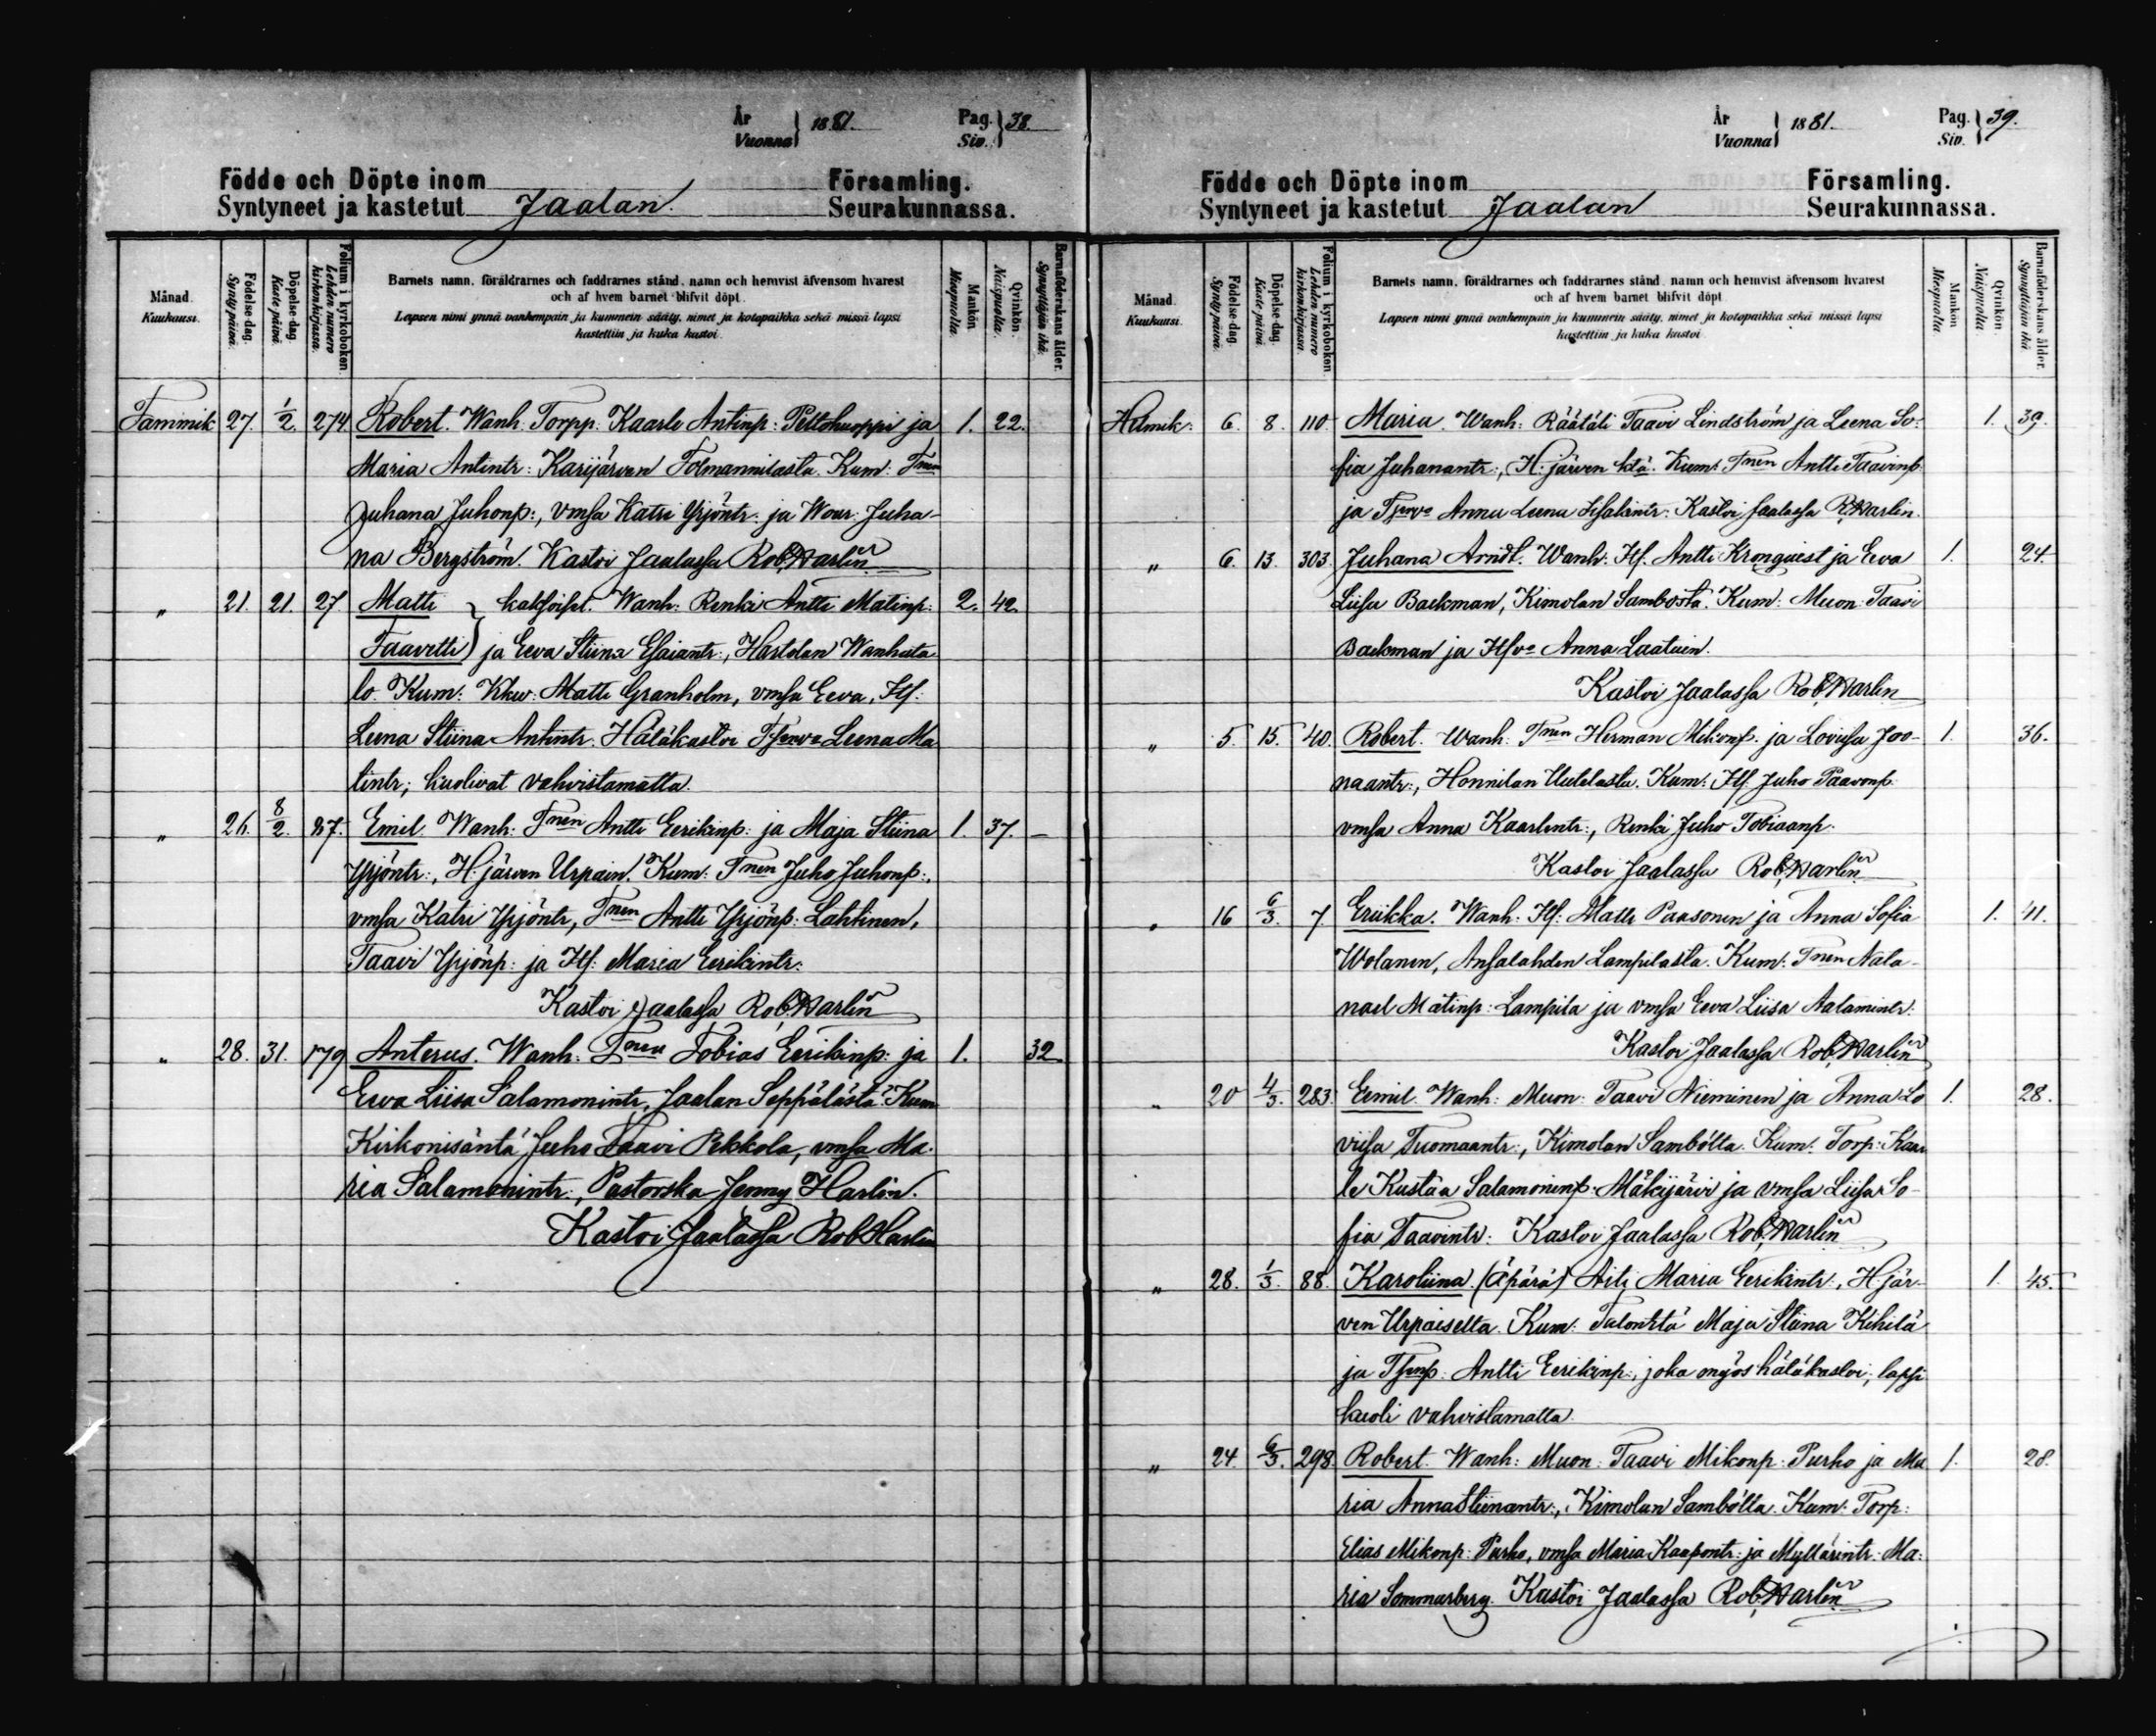 År
Vuonna } 1881. Pag. Siv. } 38.
Födde och Döpte inom Församling.
Syntyneet ja kastetut Jaalan. Seurakunnassa.
Månad. Kuukausi. Födelse-dag. Synty päivä. Döpelse-dag. Kaste päivä. Folium i kyrkoboken. Lehden numero kirkonkirjassa.
Barnets namn, föräldrarnes och faddrarnes stånd, namn och hemvist äfvensom hvarest
och af hvem barnet blifvit döpt.
Lapsen nimi ynnä vanhempain ja kummein sääty, nimet ja kotopaikka sekä missä lapsi
kastettiin ja kuka kastoi.
Mankön Miespuolia. Qvinkön. Naispuolia. Barnaföderskans ålder. Synnyttäjän ikä.
Tammik 27. 1/2. 274 Robert. Wanh. Torpp. Kaarle Antinp: Peltohuoppi ja 1. 22.
Maria Antintr: Karijärven Tolmannilasta. Kum: Tnen
Juhana Juhonp:, vmsa Katri Yrjöntr. ja Wour. Juha-
na Bergström. Kastoi Jaalassa Rob. Harlin
" 21. 21. 27 Matti } kaksoiset. Wanh: Renki Antti Matinp: 2. 42.
Taavetti } ja Eeva Stiina Esaiantr:, Hartolan Wanhata-
lo. Kum: Kkw: Matti Granholm, vmsa Eeva, Itf:
Leena Stiina Antintr. Hätäkastoi Tsenva Leena Ma
tintr; kuolivat vahvistamatta.
" 26. 8/2. 87. Emil. Wanh: Tnen Antti Eerikinp: ja Maja Stiina 1. 37. –
Yrjöntr:, H:järven Urpain. Kum: Tnen Juho Juhonp:,
vmsa Katri Yrjöntr, Tnen Antti Yrjönp: Lahtinen,
Taavi Yrjönp: ja Itf: Maria Eerikintr:
Kastoi Jaalassa Rob. Harlin
" 28. 31. 179 Anterus. Wanh: Tnen Tobias Eerikinp: ja 1. 32
Eeva Liisa Salamonintr, Jaalan Seppälästä. Kum
Kirkonisäntä Juho Taavi Pekkola, vmsa Ma-
ria Salamonintr:, Pastorska Jenny Harlin.
Kastoi Jaalassa Rob Harlin
År
Vuonna } 1881. Pag. Siv. } 39.
Födde och Döpte inom Församling.
Syntyneet ja kastetut Jaalan Seurakunnassa.
Månad. Kuukausi. Födelse-dag. Synty päivä. Döpelse-dag. Kaste päivä. Folium i kyrkoboken. Lehden numero kirkonkirjassa.
Barnets namn, föräldrarnes och faddrarnes stånd, namn och hemvist äfvensom hvarest
och af hvem barnet blifvit döpt.
Lapsen nimi ynnä vanhempain ja kummein sääty, nimet ja kotopaikka sekä missä lapsi
kastettiin ja kuka kastoi.
Mankön Miespuolia. Qvinkön. Naispuolia. Barnaföderskans ålder. Synnyttäjän ikä.
Helmik: 6. 8. 110 Maria. Wanh: Räätäli Taavi Lindström ja Leena So- 1. 39.
fia Juhanantr:, H:järven ktä. Kum: Tnen Antti Taavinp
ja Tsenva Anna Leena Iisakintr: Kastoi Jaalassa R. Harlin.
" 6. 13. 303. Juhana Arndt. Wanh: Itf. Antti Kronquist ja Eeva 1. 24.
Liisa Backman, Kimolan Sambosta. Kum: Muon: Taavi
Backman ja Itfva Anna Laatuin.
Kastoi Jaalassa Rob. Harlin
" 5. 15. 40. Robert. Wanh: Tnen Herman Mikonp. ja Lovisa Joo- 1. 36.
naantr:, Honnilan Uutelasta. Kum: Itf. Juho Paavonp.
vmsa Anna Kaarlentr:, Renki Juho Tobiaanp.
Kastoi Jaalassa Rob. Harlin
" 16 6/3. 7. Eriikka. Wanh: Itf: Matti Paasonen ja Anna Sofia 1. 41.
Wolanen, Ansalahden Lampilasta. Kum: Tnen Nata-
nael Matinp: Lampila ja vmsa Eeva Liisa Aatamintr:
Kastoi Jaalassa Rob. Harlin
" 20 4/3. 283. Eemil. Wanh: Muon: Taavi Nieminen ja Anna Lo 1. 28.
viisa Tuomaantr:, Kimolan Sambolta. Kum: Torp: Kaar
le Kustaa Salamoninp: Mäkijärvi ja vmsa Liisa So-
fia Taavintr: Kastoi Jaalassa Rob. Harlin
" 28. 1/3. 88. Karoliina. (äpärä) Äiti Maria Eerikintr:, H:jär- 1. 45.
ven Urpaiselta. Kum: Talontä Maja Stiina Kihilä
ja Tsenp: Antti Eerikinp:, joka myös hätäkastoi; lapsi
kuoli vahvistamatta.
" 24. 6/3. 298. Robert. Wanh: Muon: Taavi Mikonp: Purho ja Ma 1. 28.
ria Anna Stiinantr:, Kimolan Sambolta. Kum: Torp:
Elias Mikonp: Purho, vmsa Maria Kaapontr: ja Myllärintr: Ma-
ria Sommarberg. Kastoi Jaalassa Rob. Harlin